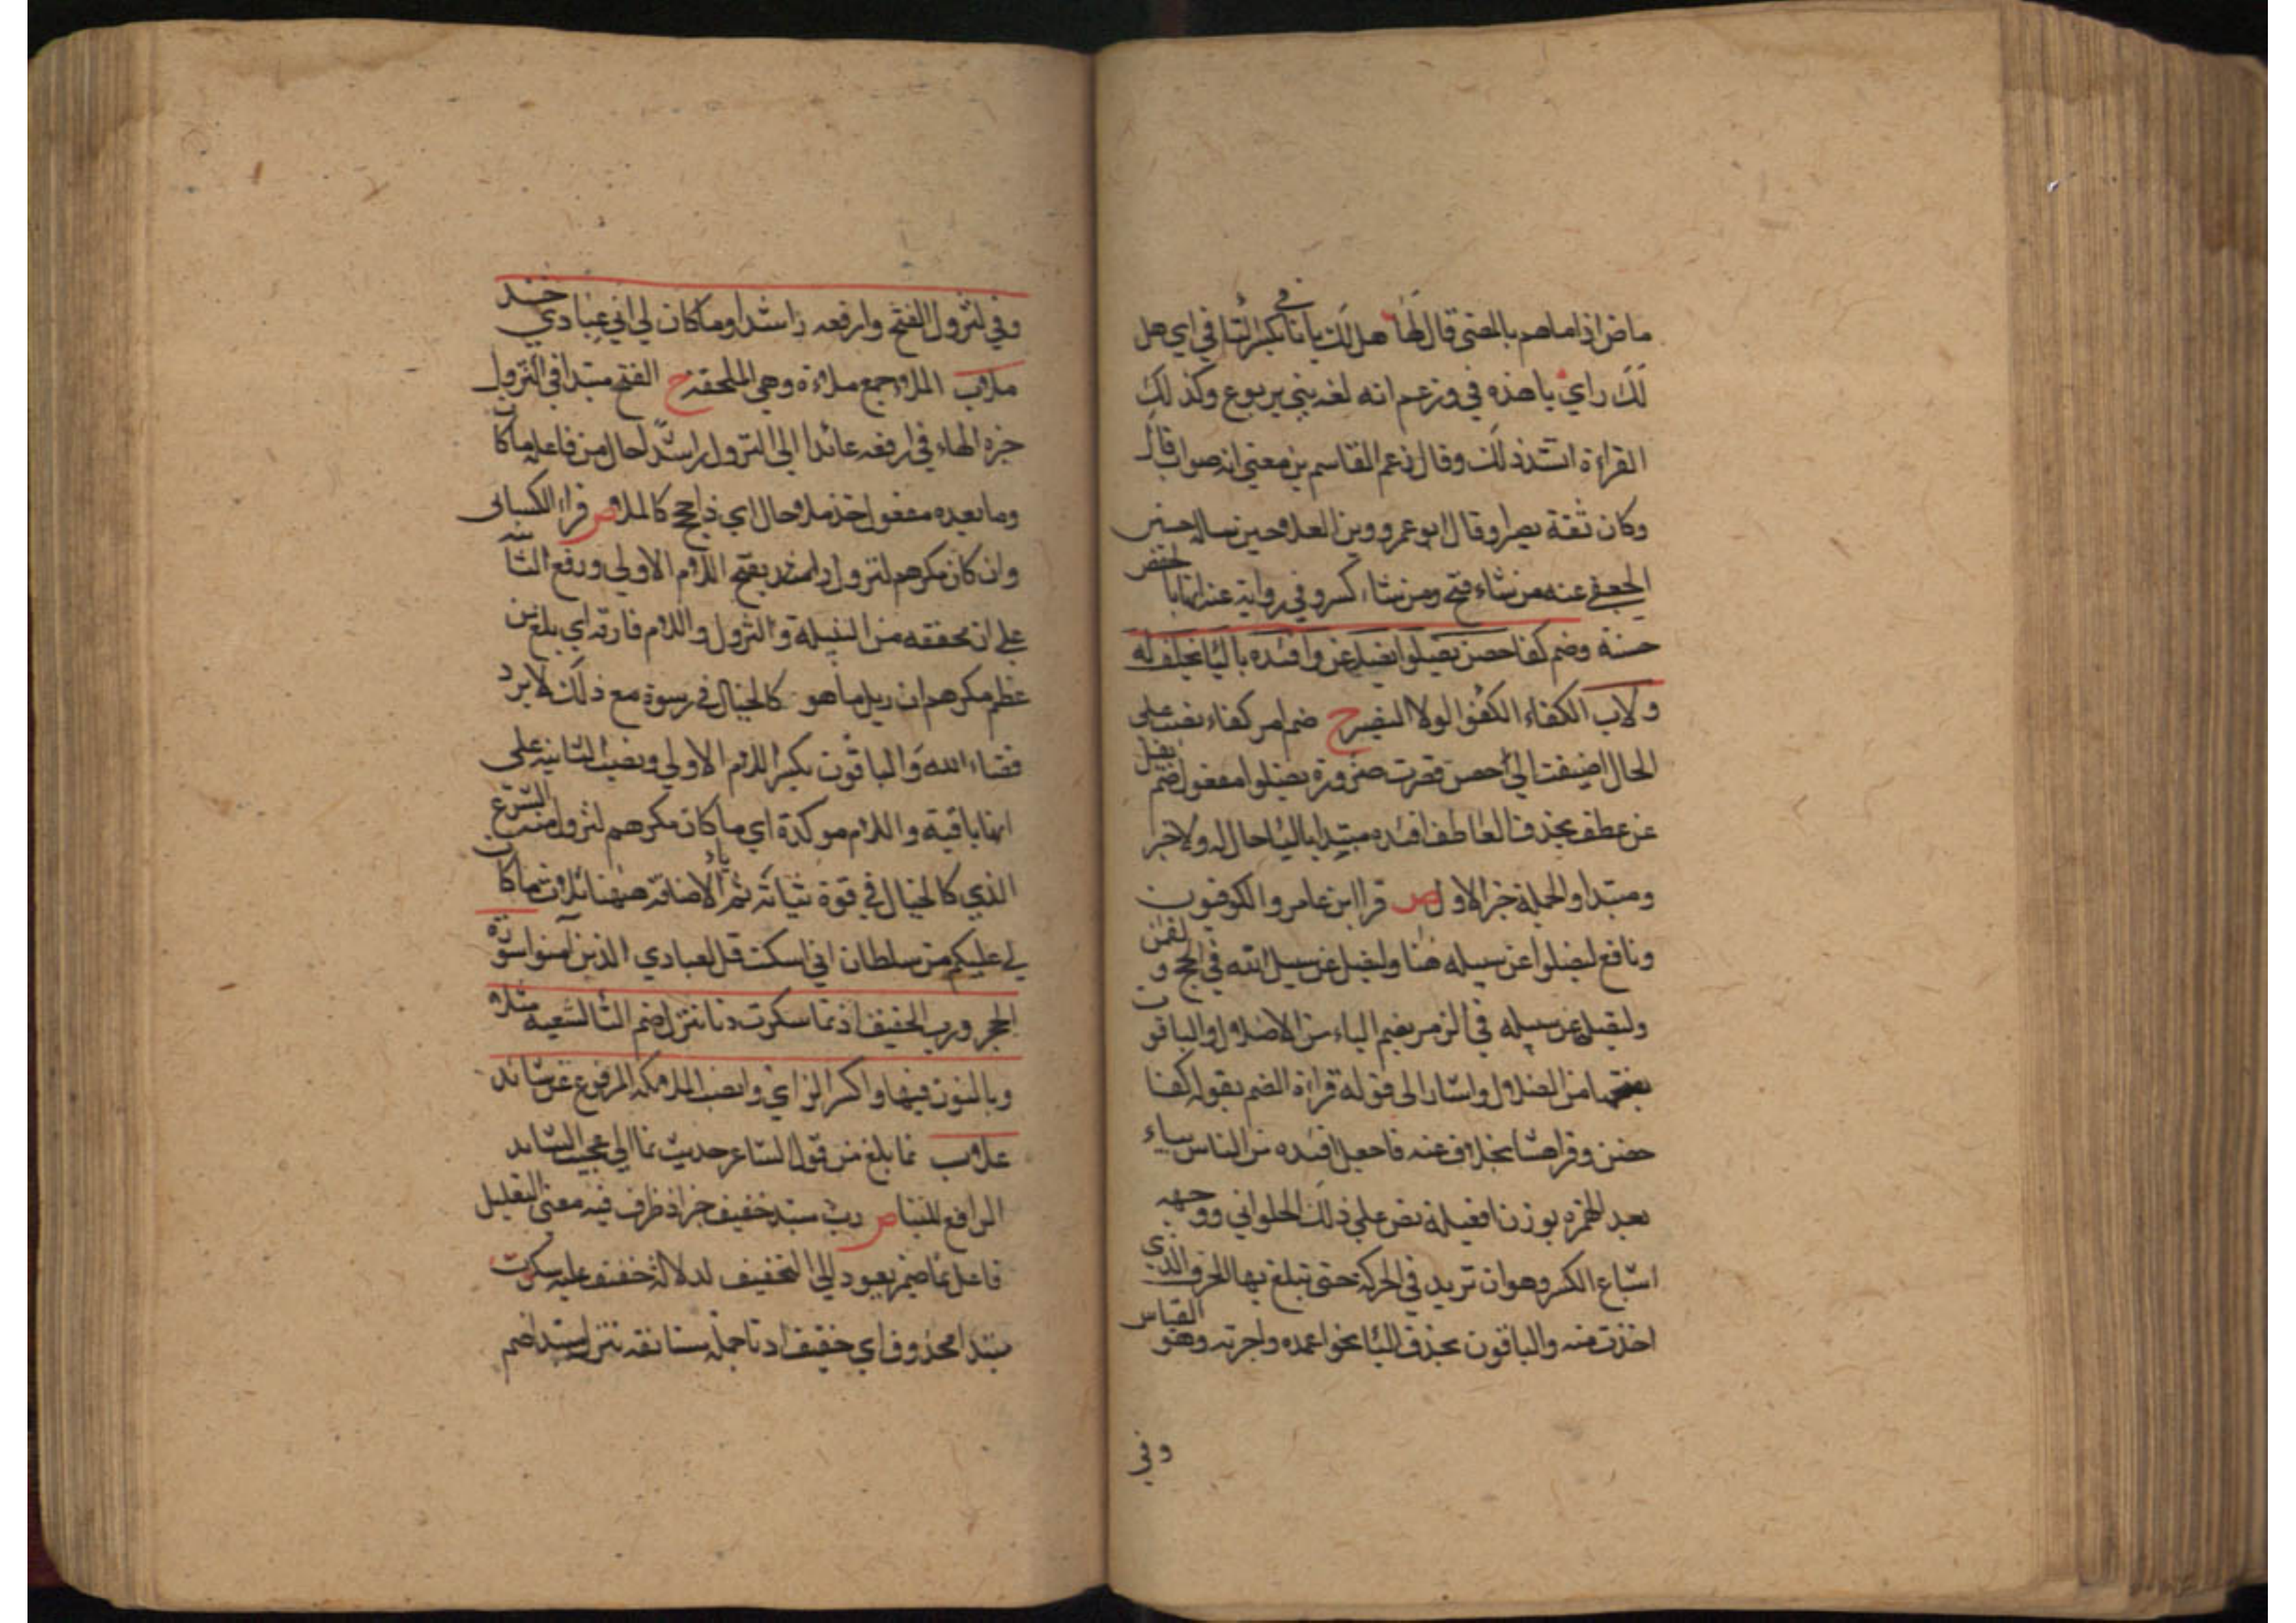 ماض اذا ماهم بالمضي قال لها هل لك يا تا في بكسر اليا في اي هل
لك راي يا هذه في وزعم انه لغه بني يربوع وكذلك
القراءة اتشد ذلك وقال زعم القاسم بن معنى انه صواب قال
وكان ثقة بصيرا وقال ابو عمرو وبن العلا وحين ساله حسين
الجعفي عنه من شاء فتح ومن شاء كسر وفي رواية عنه انها بالخفض
حسنة وضم كفا حصن يضلوا يضل عن وافئده باليا بخلف له
ولا ب الكفاء الكفؤ الولا النصير ح ضم امر كفاء نصب على
الحال اضيفت الى حصن قصرت ضرورة يضلوا مفعول ضم يضل
عن عطف بحذف العاطف افئده مبتدا باليا حال له ولا خبر
ومبتدا والجملة خبر الاول ص قرا ابن عامر والكوفيون
ونافع ليضلوا عن سبيله هنا وليضل عن سبيل الله في الحج و لقمن
وليضل عن سبيله في الزمر بضم الياء من الاضلال والباقون
بفتحها من الضلال واشار الى قوله قراءة الضم بقوله كفا
حصن وقرا هشام بخلاف عنه فاجعل افئده من الناس بياء
بعد الهمزه بوزن افعيلة نص على ذلك الحلواني ووجهه
اشباع الكسر وهو ان تزيد في الحركة حتى تبلغ بها الحرف الذي
اخذت منه والباقون بحذف اليا نحو اعمده واجربه وهو القياس
وفي
وفي لتزول الفتح وارفعه راشدا وما كان لي اني عبادي خذ
ملا ب الملا جمع ملاءة وهي الملحفة ح الفتح مبتدا في لتزول
خبره الهاء في ارفعه عائد الى لتزول راشدا حال من فاعله ما كان
وما بعده مفعول خذ ملا حال اي ذا حجج كالملا ص قراء الكسائي
وان كان مكرهم لتزول بفتح اللام الاولى ورفع الثانية
على ان مخففه من الثقيلة و لتزول واللام فارقه اي بلغ من
عظم مكرهم ان يزيل ما هو كالجبال في رسوه مع ذلك لا يرد
قضاء الله والباقون بكسر اللام الاولى ونصب الثانية على
انها نافية واللام موكدة اي ما كان مكرهم لتزول منه الشرع
الذي كالجبال في قوة ثباته ثم ياء الاضافة ههنا ثلاث ما كان
لي عليكم من سلطان اني اسكنت قل لعبادي الذين آمنوا سورة
الحجر ورب الخفيف اذ نما سكرت دنا تنزل ضم التا لشعبه مثلا
وبالنون فيها واكسر الزاي وانصب الملائكة المرفوع عن شائد
علا ب نما بلغ من قول الشاعر حديث نما الي عجيب الشائد
الرافع للبنا ص رب مبتدا خفيف خبر اذ ظرف فيه معنى التعليل
فاعل نما ضمير يعود الى التخفيف لدلالة خفيف عليه سكرت
مبتدا محذوف اي خفيف دنا جملة مستانفه تنزل مبتدا ضم